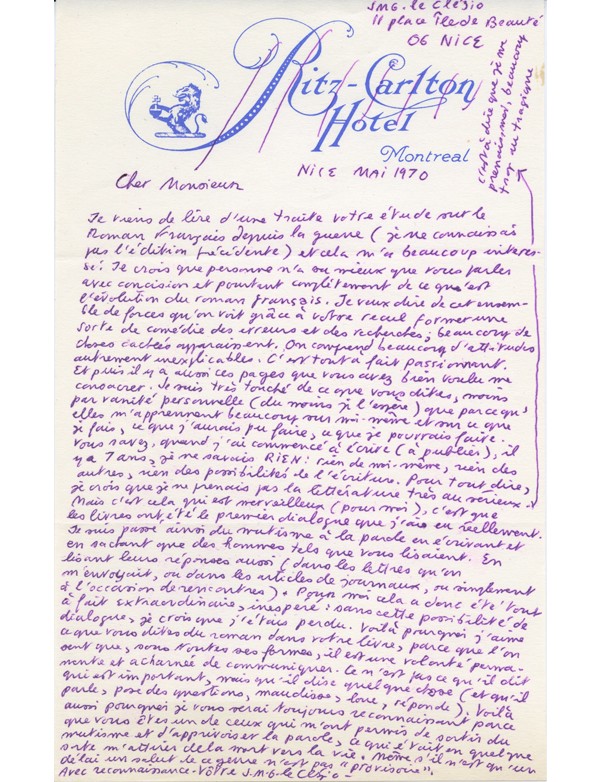 J.M.G. le Clézio
11 place Île de Beauté
06 NICE
Ritz-Carlton
Hotel
Montreal
c'est à dire que je me
prenais, moi, beaucoup
trop au tragique
NICE MAI 1970
Cher Monsieur
Je viens de lire d'une traite votre étude sur le
Roman Français depuis la guerre (je ne connaissais
pas l'édition précédente) et cela m'a beaucoup intéres-
sé. Je crois que personne n'a su mieux que vous parler
avec concision et pourtant complètement de ce qu'est
l'évolution du roman français. Je veux dire de cet ensem-
ble de forces qu'on voit grâce à votre recul former une
sorte de comédie des erreurs et des recherches, beaucoup de
choses cachées apparaissent. On comprend beaucoup d'attitudes
autrement inexplicables. C'est tout à fait passionnant.
Et puis il y a aussi ces pages que vous avez bien voulu me
consacrer. Je suis très touché de ce que vous dites, moins
par vanité personnelle (du moins je l'espère) que parce qu'
elles m'apprennent beaucoup sur moi-même et sur ce que
je fais, ce que j'aurais pu faire, ce que je pourrais faire.
Vous savez, quand j'ai commencé à écrire (à publier), il
y a 7 ans, je ne savais RIEN : rien de moi-même, rien des
autres, rien des possibilités de l'écriture. Pour tout dire,
je crois que je ne prenais pas la littérature très au sérieux.
Mais c'est cela qui est merveilleux (pour moi), c'est que
les livres ont été le premier dialogue que j'aie eu réellement.
Je suis passé ainsi du mutisme à la parole en écrivant et
en sachant que des hommes tels que vous lisaient. En
lisant leurs réponses aussi (dans les lettres qu'on
m'envoyait, ou dans les articles de journaux, ou simplement
à l'occasion de rencontres). Pour moi cela a donc été tout
à fait extraordinaire, inespéré : sans cette possibilité de
dialogue, je crois que j'étais perdu. Voilà pourquoi j'aime
ce que vous dites du roman dans votre livre, parce que l'on
sent que, sous toutes ses formes, il est une volonté perma-
nente et acharnée de communiquer. Ce n'est pas ce qu'il dit
qui est important, mais qu'il dise quelque chose (et qu'il
parle, pose des questions, maudisse, loue, réponde). Voilà
aussi pourquoi je vous serai toujours reconnaissant parce
que vous êtes un de ceux qui m'ont permis de sortir du
mutisme et d'apprivoiser la parole, ce qui était en quelque
sorte m'attirer de la mort vers la vie. Même s'il n'est qu'un
délai un salut de ce genre n'est pas "provisoire".
Avec reconnaissance - Vôtre J.M.G. le Clézio -